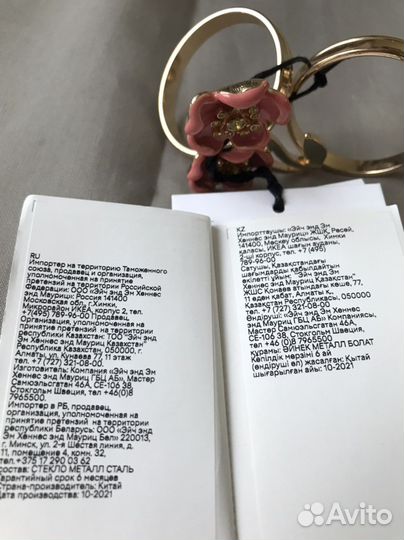 RU
Импортер на территорию Таможенного
союза, продавец и организация,
уполномоченная на принятие
претензий на территории Российской
Федерации: ООО «Эйч энд Эм Хеннес
энд Мауриц» Россия 141400
Московская обл, г.Химки,
Микрорайон ИКЕА, корпус 2, тел.
+7(495) 789-96-00 Продавец,
Организация, уполномоченная на
принятие претензий на территории
Республики Казахстан: ТОО "Эйч энд
Эм Хеннес энд Мауриц Казахстан"
Республика Казахстан, 050000, г.
Алматы, ул Кунаева 77, 11 этаж
тел. +7 (727) 321-08-00.
Изготовитель: Компания «Эйч энд Эм
Хеннес энд Мауриц ГБЦ АБ», Мастер
Самюэльсгатан 46А, СЕ-106 38,
Стокгольм Швеция, тел +46(0)8
7965500.
Импортер в РБ, продавец,
организация, уполномоченная на
принятие претензий на территории
республики Беларусь: ООО «Эйч энд
Эм Хеннес энд Мауриц Бел» 220013,
г. Минск, ул. 2-я Шестая линия, д.
11, помещение 4, ком. 32,
тел.+375 17 290 03 62
состав: СТЕКЛО МЕТАЛЛ СТАЛЬ
Гарантийный срок 6 месяцев
Страна-производитель: Китай
Дата производства: 10-2021
KZ
Импорттаушы: «Эйч энд Эм
Хеннес энд Мауриц» ЖШҚ, Ресей,
141400, Мәскеу облысы, Химки
қаласы, ИКЕА шағын ауданы,
2-ші корпус, тел. +7 (495)
789-96-00
Сатушы, Қазақстандағы
шағымдарды қабылдайтын
өкілетті ұйым: "Эйч энд Эм
Хеннес энд Мауриц Казахстан"
ЖШС Қонаев атындағы көше, 77,
11 еден қабат, Алматы қ.,
Қазақстан Республикасы, 050000
тел. +7 (727) 321-08-00
Өндіруші: «Эйч энд Эм Хеннес
энд Мауриц ГБЦ АБ» Компаниясы,
Мастер Самюэльсгатан 46А,
СЕ-106 38, Стокгольм Швеция,
тел +46 (0)8 7965500
құрамы: ӘЙНЕК МЕТАЛЛ БОЛАТ
Кепілдік мерзімі 6 ай
(өндіруші ел) жасалған: Қытай
шығарылған айы: 10-2021
Avito